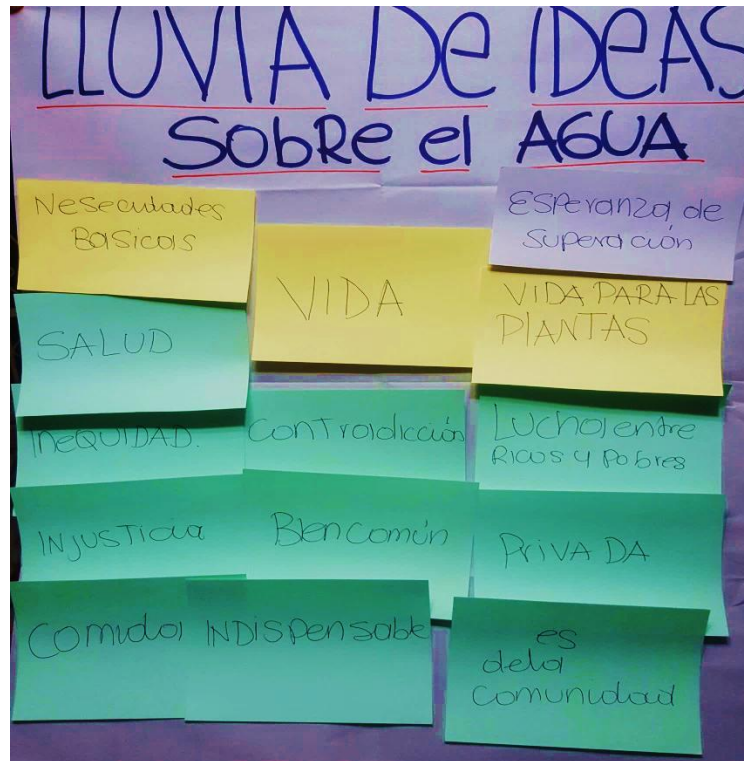 LLUVIA De IDeAS
SobRe el AGUA
Nesecidades
Basicas
VIDA
ESPeranza de
Superación
VIDA PARA LAS
PlANTAS
SALUD
IneQUIDAD.
ConTradicción
LUcha entre
RICOS y Pobres
INJUSTicia
BIen común
PrivADA
Comida
INDISPenSable
es
dela
comunidad